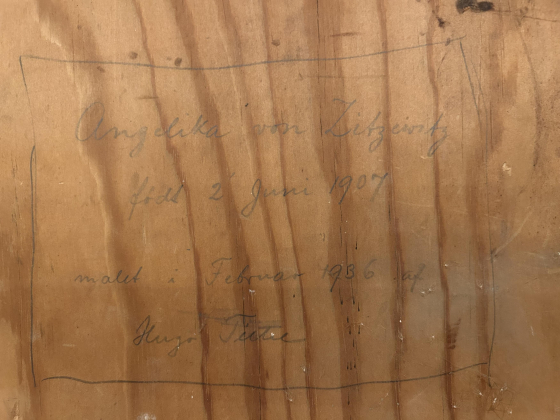 Angelika von Zitzewitz
født 2 Juni 1907
malet i Februar 1936 af
Hugo